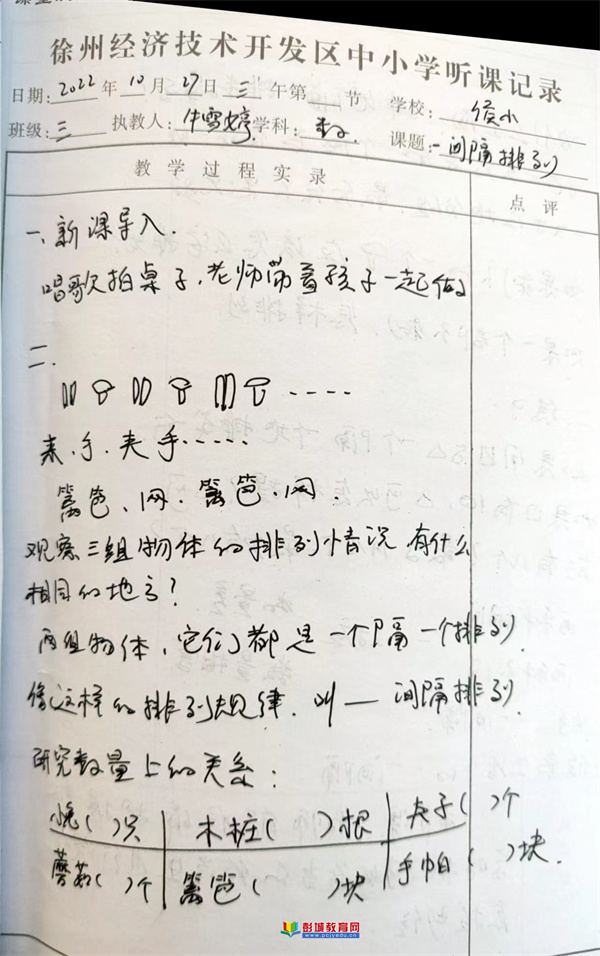 徐州经济技术开发区中小学听课记录
日期：2022年10月27日三午第 节 学校：侯小
班级：三 执教人：牛雪婷 学科：数 课题：一一间隔排列
教学过程实录 点评
一、新课导入.
唱歌拍桌子，老师带着孩子一起做
二.
夹.手.夹手.....
篱笆、网.篱笆、网.
观察三组物体的排列情况有什么
相同的地方？
两组物体，它们都是一个隔一个排列.
像这样的排列规律.叫一一间隔排列.
研究数量上的关系：
小兔( )只 木桩( )根 夹子( )个
蘑菇( )个 篱笆( )块 手帕( )块.
彭城教育网
www.pcjyedu.cn